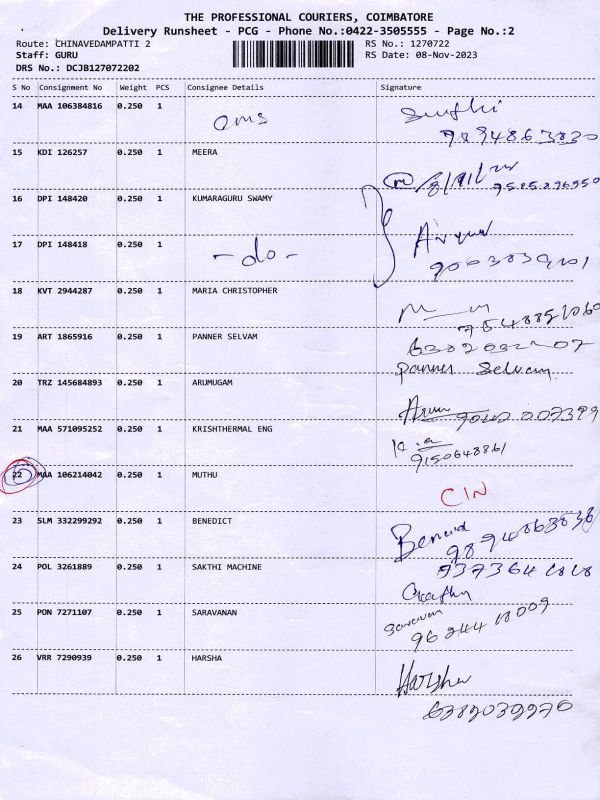 THE PROFESSIONAL COURIERS, COIMBATORE
Delivery Runsheet - PCG - Phone No.:0422-3505555 - Page No.:2
Route: CHINAVEDAMPATTI 2 RS No.: 1270722
Staff: GURU RS Date: 08-Nov-2023
DRS No.: DCJB127072202
S No Consignment No Weight PCS Consignee Details Signature
14 MAA 106384816 0.250 1 oms
15 KDI 126257 0.250 1 MEERA
16 DPI 148420 0.250 1 KUMARAGURU SWAMY
17 DPI 148418 0.250 1 - do -
18 KVT 2944287 0.250 1 MARIA CHRISTOPHER
19 ART 1865916 0.250 1 PANNER SELVAM
Panner Selvam
20 TRZ 145684893 0.250 1 ARUMUGAM
21 MAA 571095252 0.250 1 KRISHTHERMAL ENG
9150648861
22 MAA 106214042 0.250 1 MUTHU CIN
23 SLM 332299292 0.250 1 BENEDICT
24 POL 3261889 0.250 1 SAKTHI MACHINE
25 PON 7271107 0.250 1 SARAVANAN
Saravanan
26 VRR 7290939 0.250 1 HARSHA Harsha
6382039970